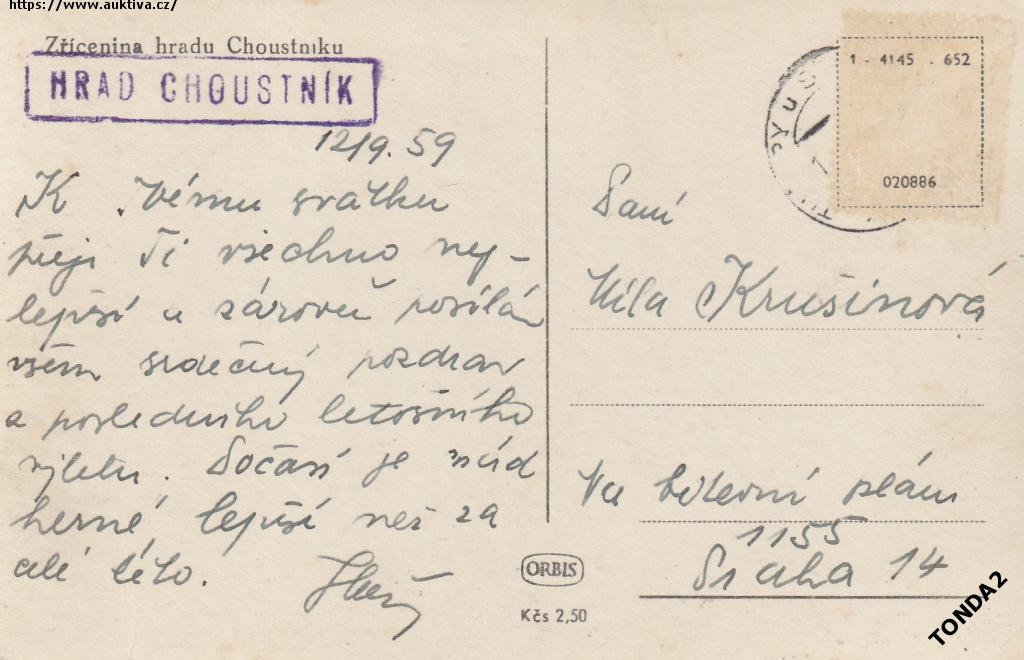 https://www.auktiva.cz/
Zřícenina hradu Choustníku
HRAD CHOUSTNÍK
12/9. 59
K Tvému svátku
přeji Ti všechno nej-
lepší a zároveň posílám
všem srdečný pozdrav
z posledního letošního
výletu. Počasí je nád
herné, lepší než za
celé léto.
1 - 4145 - 652
020886
Paní
Míla Krušinová
Na bitevní pláni
1155
Praha 14
ORBIS
Kčs 2,50
TONDA2